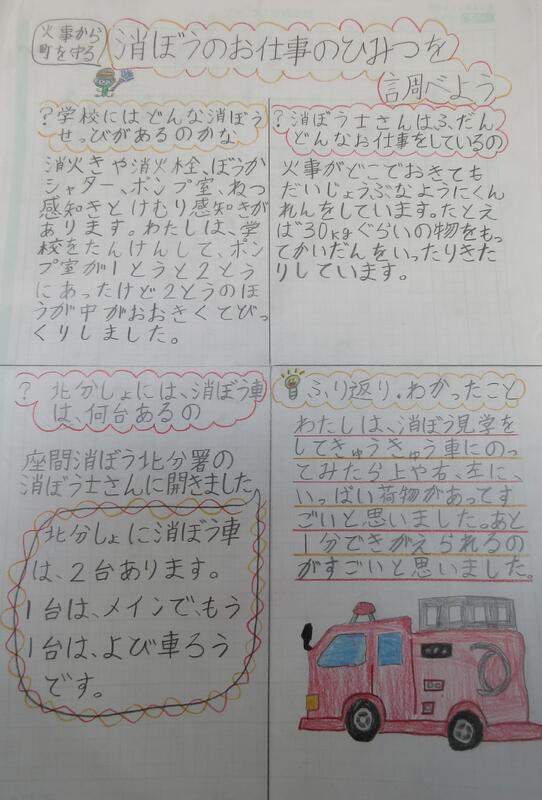 火事から
町を守る
消ぼうのお仕事のひみつを
調べよう
?学校にはどんな消ぼう
せつびがあるのかな
消火きや消火栓、ぼうか
シャター、ポンプ室、ねつ
感知きとけむり感知きが
あります。わたしは、学
校をたんけんして、ポン
プ室が1とうと2とう
にあったけど2とうのほ
うが中がおおきくてびっ
くりしました。
?消ぼう士さんはふだん
どんなお仕事をしているの
火事がどこでおきても
だいじょうぶなようにくん
れんをしています。たとえ
ば30kgぐらいの物をもっ
てかいだんをいったりきた
りしています。
? 北分しょには、消ぼう車
は、何台あるの
座間消ぼう北分署の
消ぼう士さんに開きました
北分しょに消ぼう車
は、2台あります。
1台は、メインで、もう
1台は、よび車ろう
です。
ふり返り・わかったこと
わたしは、消ぼう見学を
してきゅうきゅう車にのっ
てみたら上や右、左に、
いっぱい荷物があってす
ごいと思いました。あと
1分できがえられるの
がすごいと思いました。